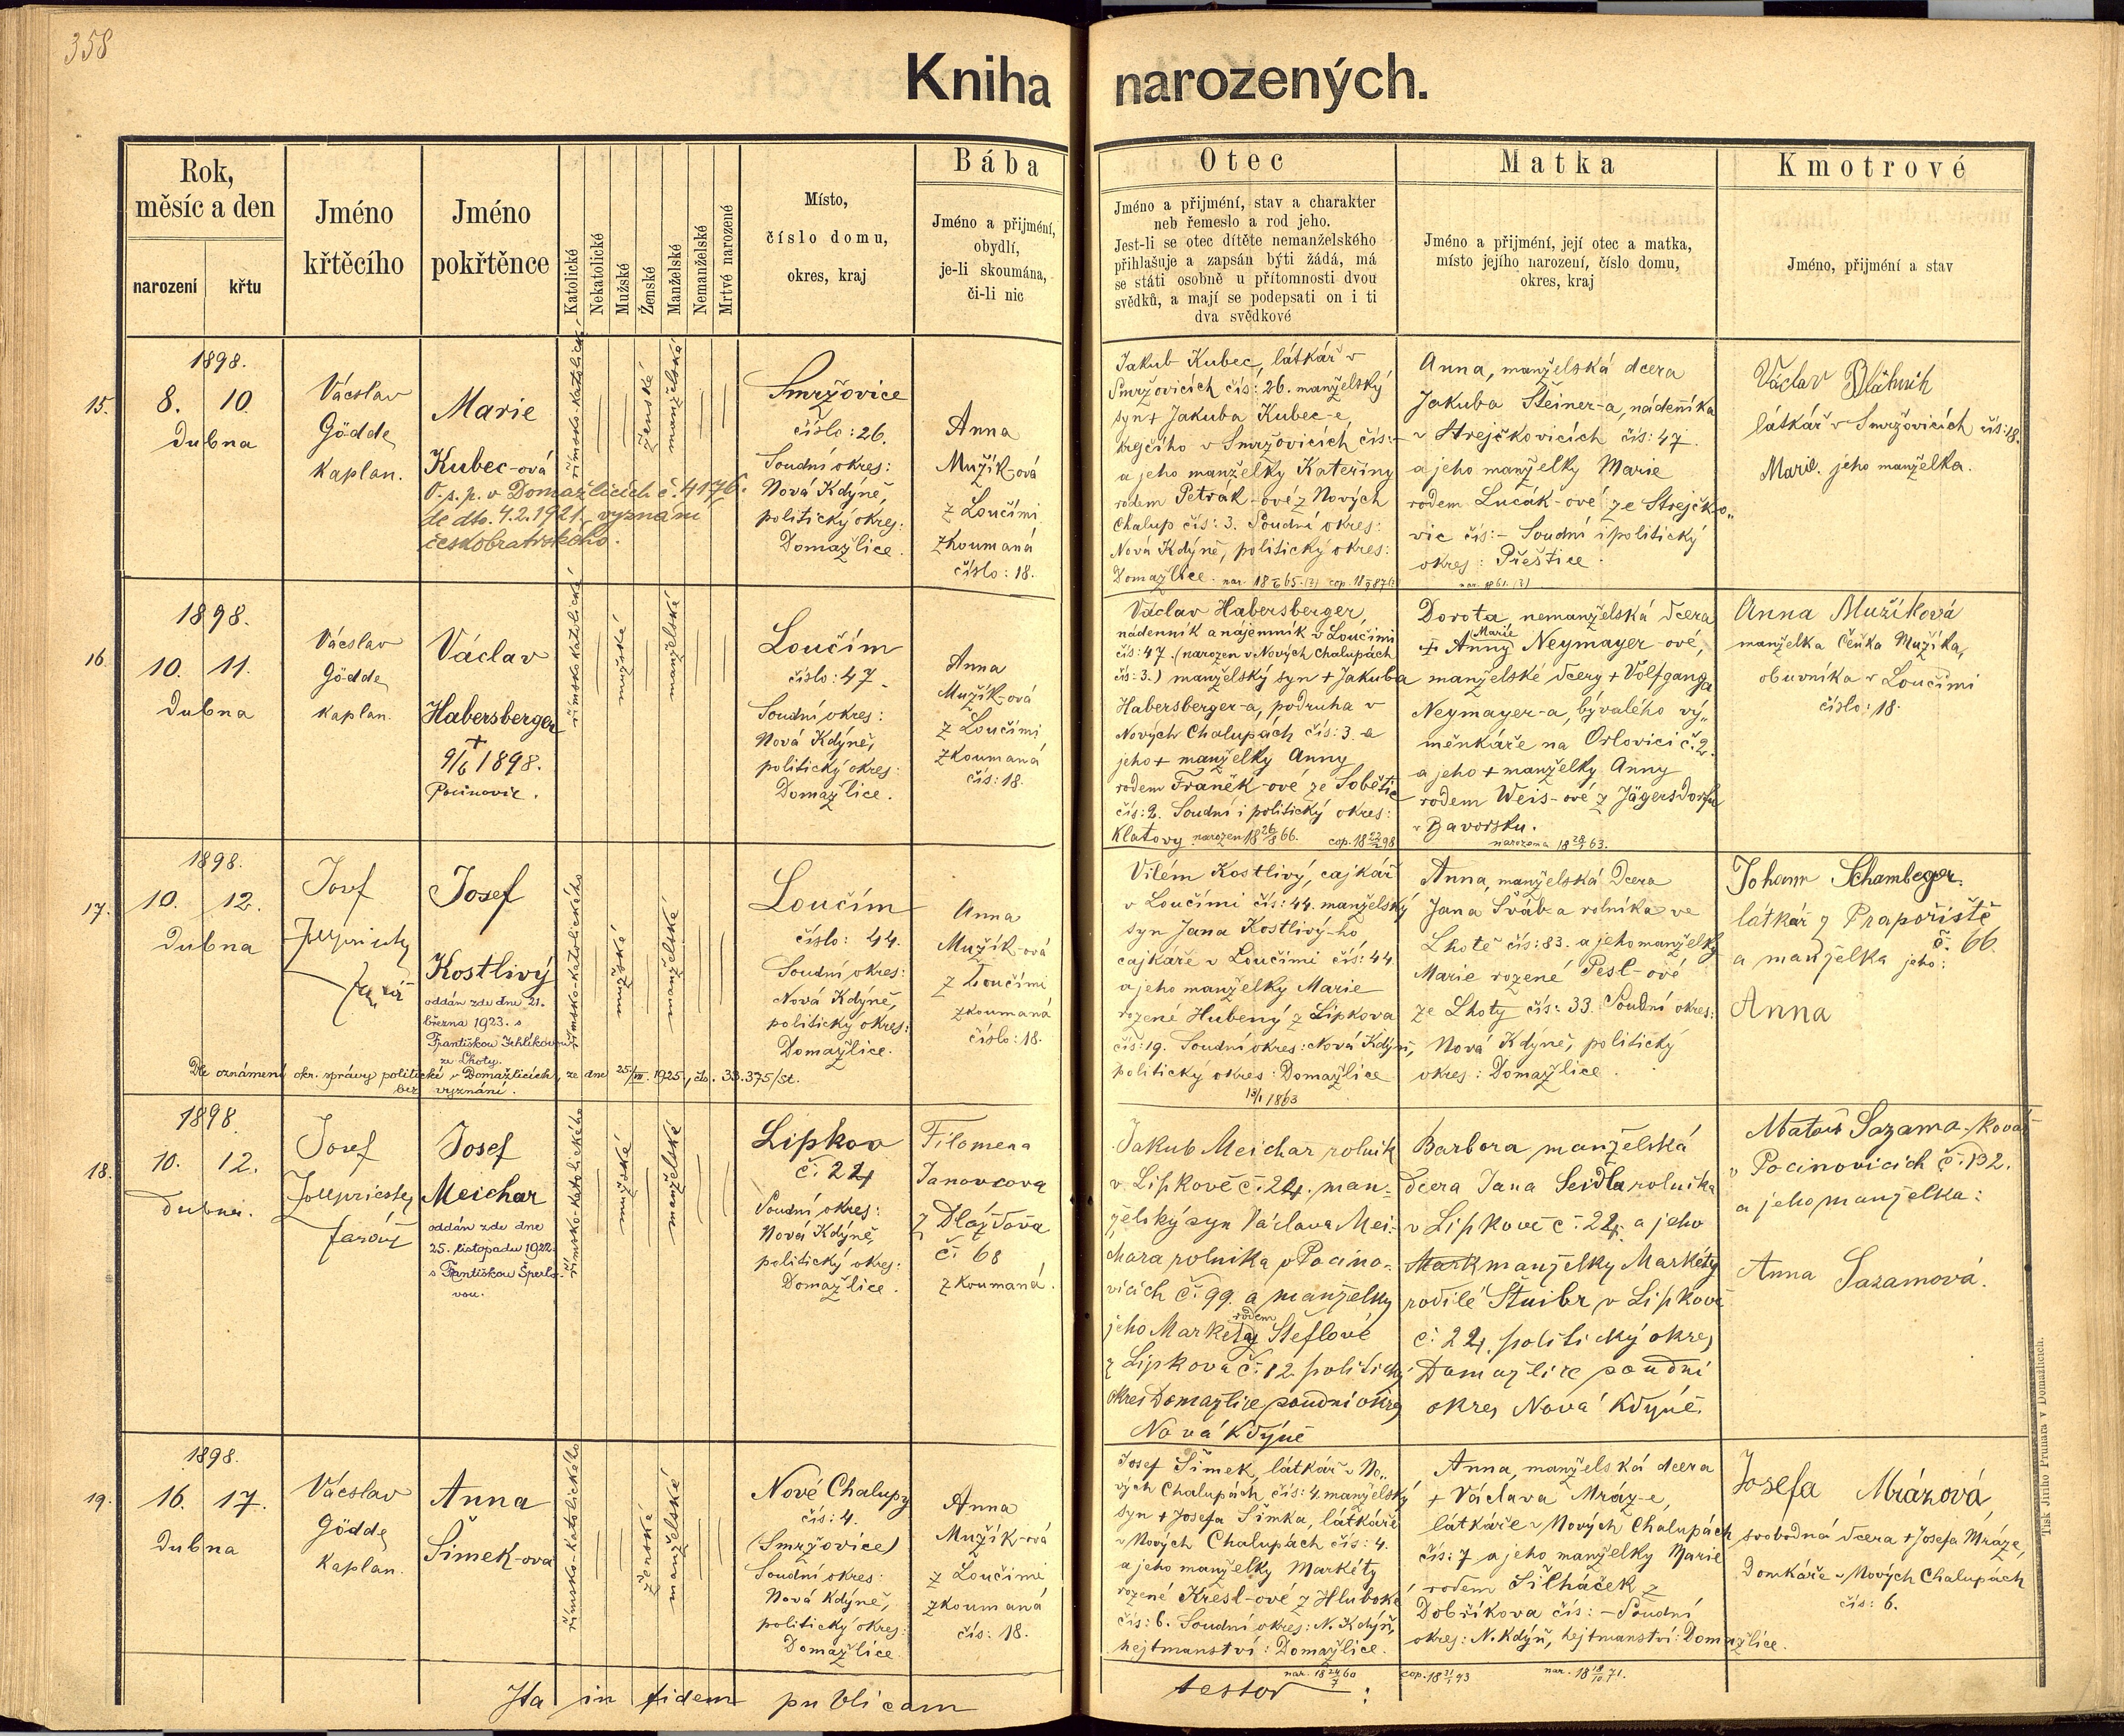 358
Kniha narozených.
Rok,
měsíc a den
narození
křtu
Jméno
křtěcího
Jméno
pokřtěnce
Katolické
Nekatolické
Mužské
Ženské
Manželské
Nemanželské
Mrtvé narozené
Místo,
číslo domu,
okres, kraj
Bába
Jméno a přijmení,
obydlí,
je-li skoumána,
či-li nic
Otec
Jméno a přijmení, stav a charakter
neb řemeslo a rod jeho.
Jest-li se otec dítěte nemanželského
přihlašuje a zapsán býti žádá, má
se státi osobně u přítomnosti dvou
svědků, a mají se podepsati on i ti
dva svědkové
Matka
Jméno a přijmení, její otec a matka,
místo jejího narození, číslo domu,
okres, kraj
Kmotrové
Jméno, přijmení a stav
15.
1898.
8. 10.
dubna
Vácslav
Gödde
Kaplan.
Marie
Kubec-ová
O.s.p. v Domažlicích č. 4176.
de dto. 4.2.1921, vyznání
českobratrského.
římsko-katolické
ženské
manželské
Smržovice
číslo: 26.
Soudní okres:
Nová Kdýně,
politický okres:
Domažlice.
Anna
Mužík-ová
z Loučími
zkoumaná
číslo: 18.
Jakub Kubec, látkář v
Smržovicích čís: 26. manželský
syn + Jakuba Kubec-e
krejčího v Smržovicích čís: -
a jeho manželky Kateřiny
rodem Petrák-ové z Nových
Chalup čís: 3. Soudní okres:
Nová Kdýně, politický okres:
Domažlice.
Anna, manželská dcera
Jakuba Steiner-a, nádeníka
v Strejčkovicích čís: 47.
a jeho manželky Marie
rodem Lucák-ové ze Strejčko„
vic čís: - Soudní i politický
okres: Přeštice.
nar. 1861. (?)
Václav Bláhnik
látkář v Smržovicích čís: 18.
Marie jeho manželka.
16.
1898.
10. 11.
dubna
Vácslav
Gödde
Kaplan.
Václav
Habersberger
+
9/6 1898.
Pocinovic.
římsko katolické
mužské
manželské
Loučím
číslo: 47
Soudní okres:
Nová Kdýně,
politický okres:
Domažlice.
Anna
Mužík-ová
z Loučími
zkoumaná
čís: 18.
Václav Habersberger,
nádenník a nájemník v Loučimi
čís: 47. (narozen v Nových Chalupách
čís: 3.) manželský syn + Jakuba
Habersberger-a, podruha v
Nových Chalupách čís: 3. a
jeho + manželky Anny
rodem Franěk-ové ze Sobětic
čís: 2. Soudní i politický okres:
Klatovy narozen 18 26/8 66. cop. 18 22/2 98
Dorota, nemanželská dcera
Marie
+ Anny Neymayer-ové,
manželské dcery + Volfganga
Neymayer-a, bývalého vý„
měnkáře na Orlovici č. 2.
a jeho + manželky Anny
rodem Weis-ové z Jägersdorfu
v Bavorsku.
Anna Mužíková
manželka Čeňka Mužíka,
obuvníka v Loučimi
číslo: 18.
17.
1898.
10. 12.
dubna
Josef
Jollpriester
farář
Josef
Kostlivý
oddán zde dne 21.
března 1923. s
Františkou Jehlíkovou
ze Lhoty.
Dle oznámení okr. správy politické v Domažlicích, ze dne 25/VII. 1925, čís. 33.375/st.
bez vyznání.
římsko-katolického
mužské
manželské
Loučím
číslo: 44.
Soudní okres:
Nová Kdýně,
politický okres:
Domažlice.
Anna
Mužík-ová
z Loučími
zkoumaná
číslo: 18.
Vilém Kostlivý, cajkář
v Loučími čís: 44. manželský
syn Jana Kostlivý-ho
cajkáře v Loučími čís: 44
a jeho manželky Marie
rozené Hubený z Lipkova
čís: 19. Soudní okres: Nová Kdýň,
politický okres: Domažlice
13/1 1863
Anna, manželská dcera
Jana Šváb-a rolníka ve
Lhotě čís: 83. a jeho manželky
Marie rozené Pesl-ové
ze Lhoty čís: 33. Soudní okres:
Nová Kdýně, politický
okres: Domažlice.
Johann Schamberger.
látkář z Prapořiště
č. 66.
a manželka jeho:
Anna
18.
1898
10. 12.
dubna.
Josef
Jollpriester
farář
Josef
Meichar
oddán zde dne
25. listopadu 1922
s Františkou Šperlo-
vou.
římsko-katolického
mužské
manželské
Lipkov
č. 24
Soudní okres:
Nová Kdýně,
politický okres:
Domažlice.
Filomena
Janovcova
z Dlažďova
č. 68
zkoumaná.
Jakub Meichar rolník
v Lipkově č. 24. man-
želský syn Václava Mei-
chara rolníka v Pocino-
vicích č. 99. a manželky
rodem
jeho Markéty Šteflové
z Lipkova č. 12 politický
okres Domažlice soudní okres
Nová Kdýně
Barbora manželská
dcera Jana Seidla rolníka
v Lipkově č. 24. a jeho
manželky Markéty
rodilé Štuibr v Lipkově
č. 24. politický okres
Domažlice soudní
okres Nová Kdyně.
Matouš Sazama, kovář
v Pocinovicích č. 132.
a jeho manželka:
Anna Sazamová.
19.
1898.
16. 17.
dubna
Vácslav
Gödde
Kaplan.
Anna
Šimek-ova
římsko-katolického
ženské
manželské
Nové Chalupy
čís: 4.
(Smržovice)
Soudní okres:
Nová Kdýně,
politický okres:
Domažlice.
Anna
Mužík-ová
z Loučimi
zkoumaná
čís: 18.
Josef Šimek, látkář v No„
vých Chalupách čís: 4. manželský
syn + Josefa Šimka, látkáře
v Nových Chalupách čís: 4.
a jeho manželky Markéty
rozené Kresl-ové z Hluboké
čís: 6. Soudní okres: N. Kdýň,
hejtmanství: Domažlice.
nar. 18 24/7 60
Anna, manželská dcera
+ Václava Mráz-e,
látkáře v Nových Chalupách
čís: 7 a jeho manželky Marie
rodem Šilháček z
Dobříkova čís: - Soudní
okres: N. Kdýň, hejtmanství: Domažlice.
cop. 18 31/1 93 nar. 18 18/10 71.
Josefa Mrázová,
svobodná dcera + Josefa Mráze,
domkáře v Nových Chalupách
čís: 6.
Ita in fidem publicam testor:
Tisk Jiřího Prunara v Domažlicích.